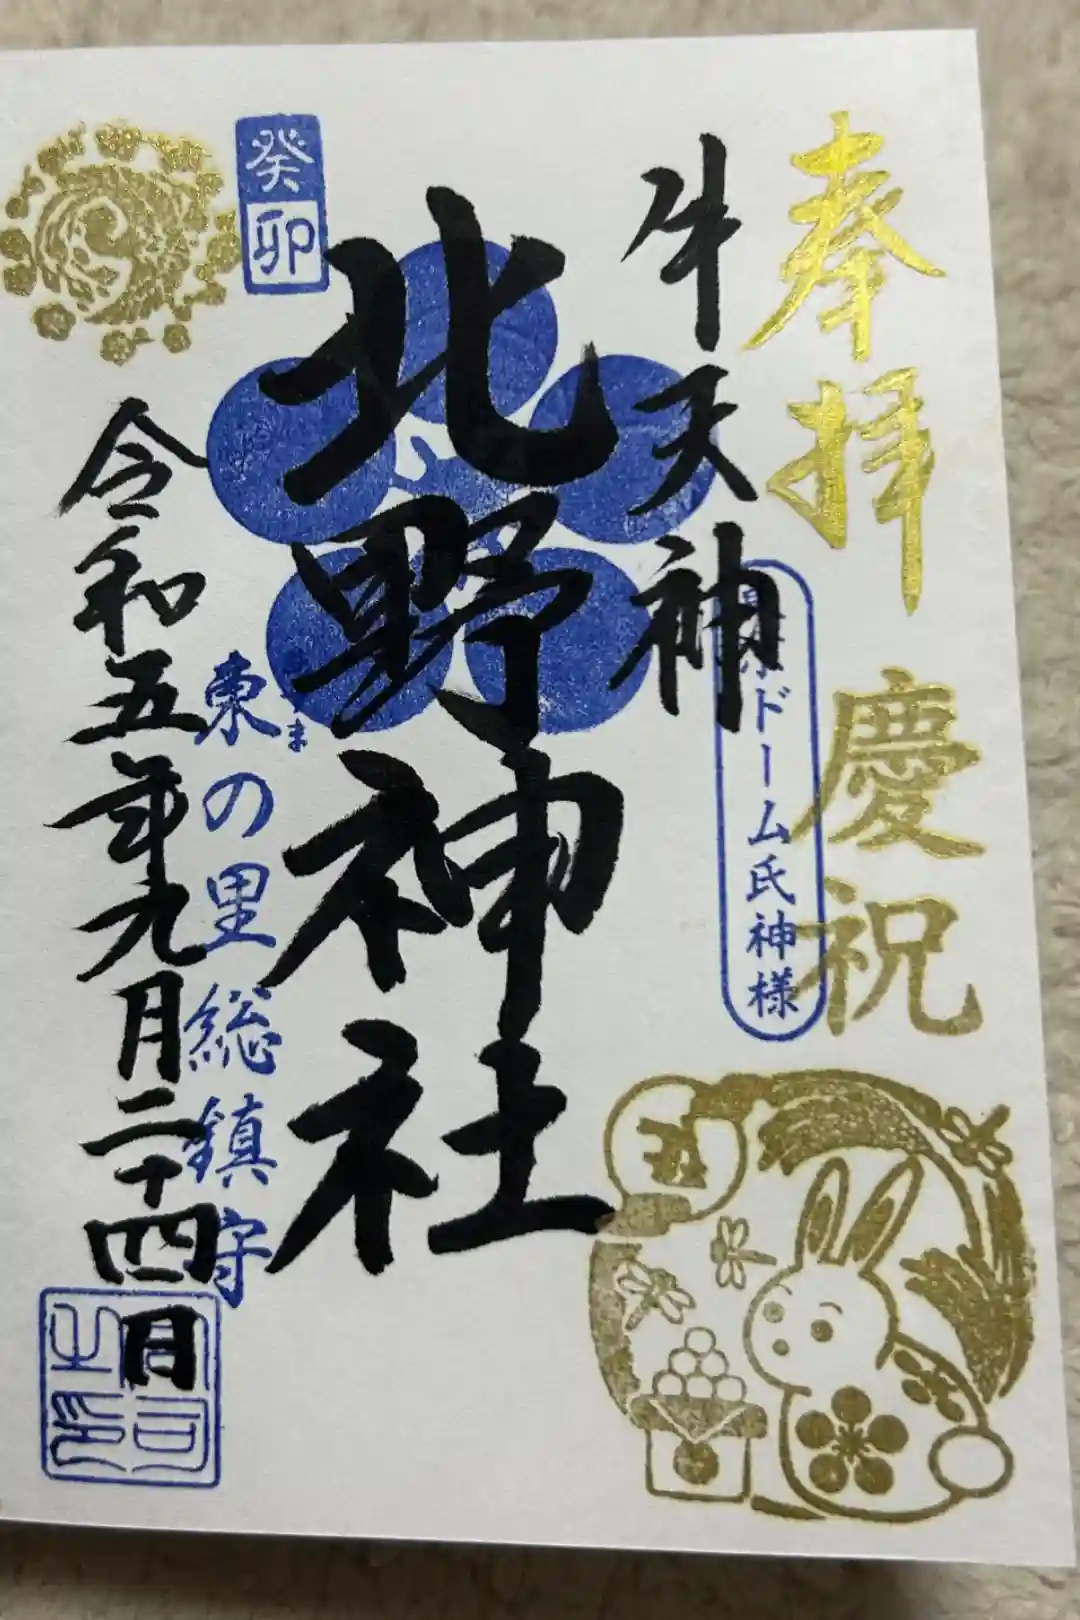 奉拝
慶祝
ドーム氏神様
牛天神
北野神社
癸卯
東の里総鎮守
令和五年九月二十四日